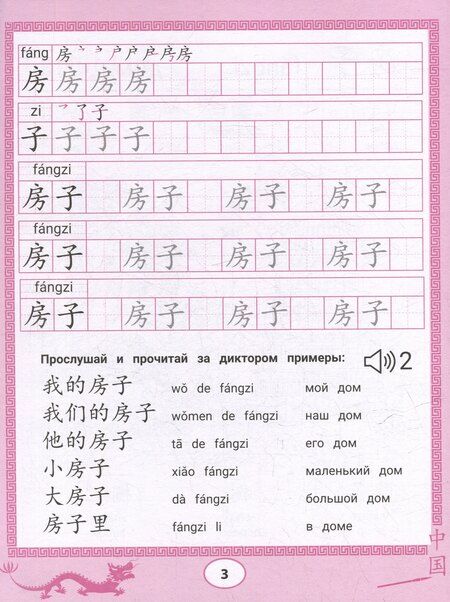 fáng 房
房 房 房 房
zi 子
子 子 子 子
fángzi
房子 房子 房子 房子
fángzi
房子 房子 房子 房子
fángzi
房子 房子 房子 房子
Прослушай и прочитай за диктором примеры: 2
我的房子 wǒ de fángzi мой дом
我们的房子 wǒmen de fángzi наш дом
他的房子 tā de fángzi его дом
小房子 xiǎo fángzi маленький дом
大房子 dà fángzi большой дом
房子里 fángzi li в доме
中国
3